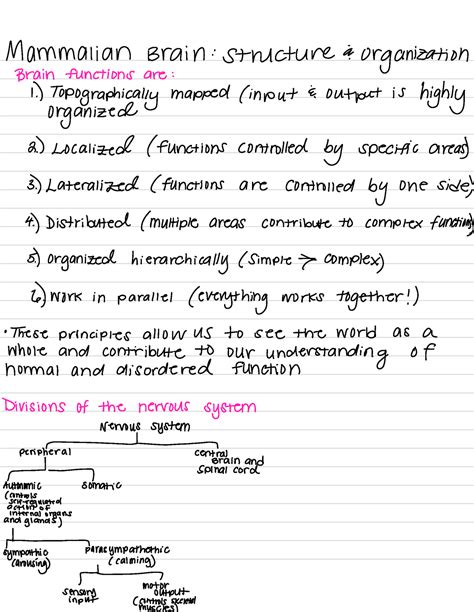 Mammalian Brain: Structure & organization
Brain functions are:
1.) Topographically mapped (input & output is highly
organized
2.) Localized (functions controlled by specific areas)
3.) Lateralized (functions are controlled by one side)
4.) Distributed (multiple areas contribute to complex function)
5.) organized hierarchically (simple > complex)
6.) work in parallel (everything works together!)
• These principles allow us to see the word as a
whole and contribute to our understanding of
normal and disordered function
Divisions of the nervous system
Nervous system
peripheral
central
Brain and
spinal cord
Autonomic
(controls
self-regulated
action of
internal organs
and glands)
somatic
sympathic
(arousing)
parasympathathic
(calming)
sensory
input
motor
output
(controls skeletal
muscles)